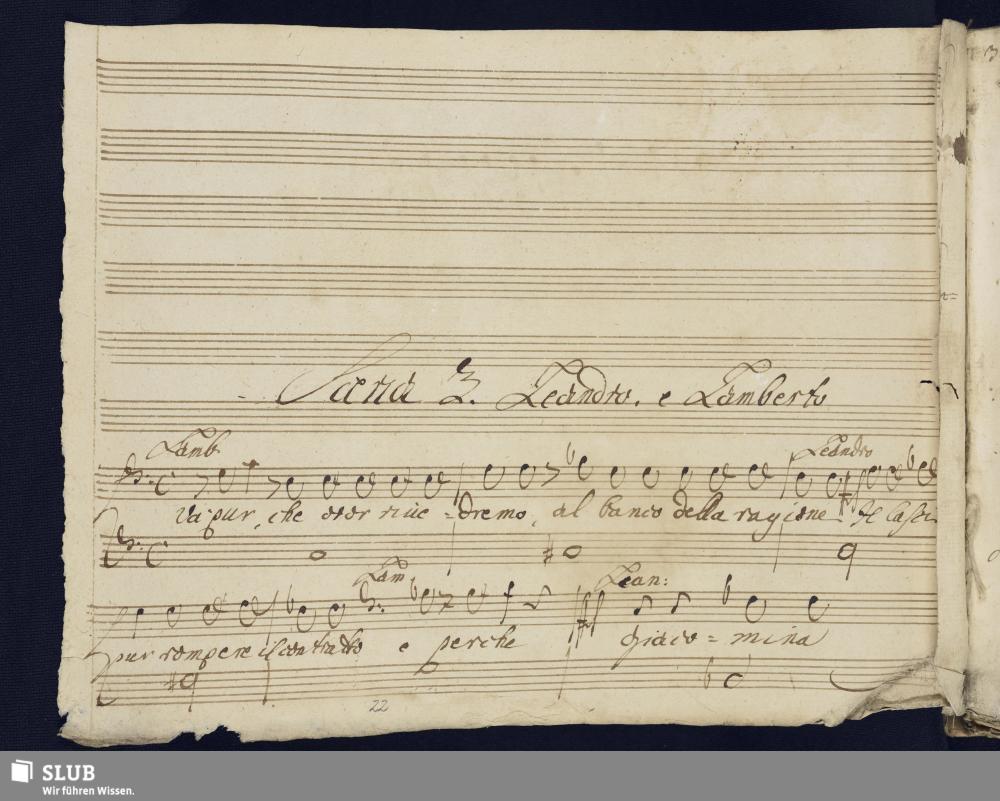 Scena 3. Leandro, e Lamberto
Lamb
Leandro
Va pur, che or or rive = dremo, al banco della ragione Si lasci
Lam
Lean:
pur rompere il contratto e perche Giaco = mina
22
SLUB
Wir führen Wissen.